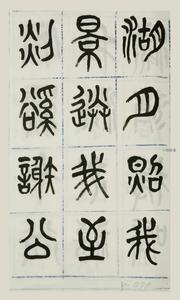 湖月照我
景送我至
剡谿謝公